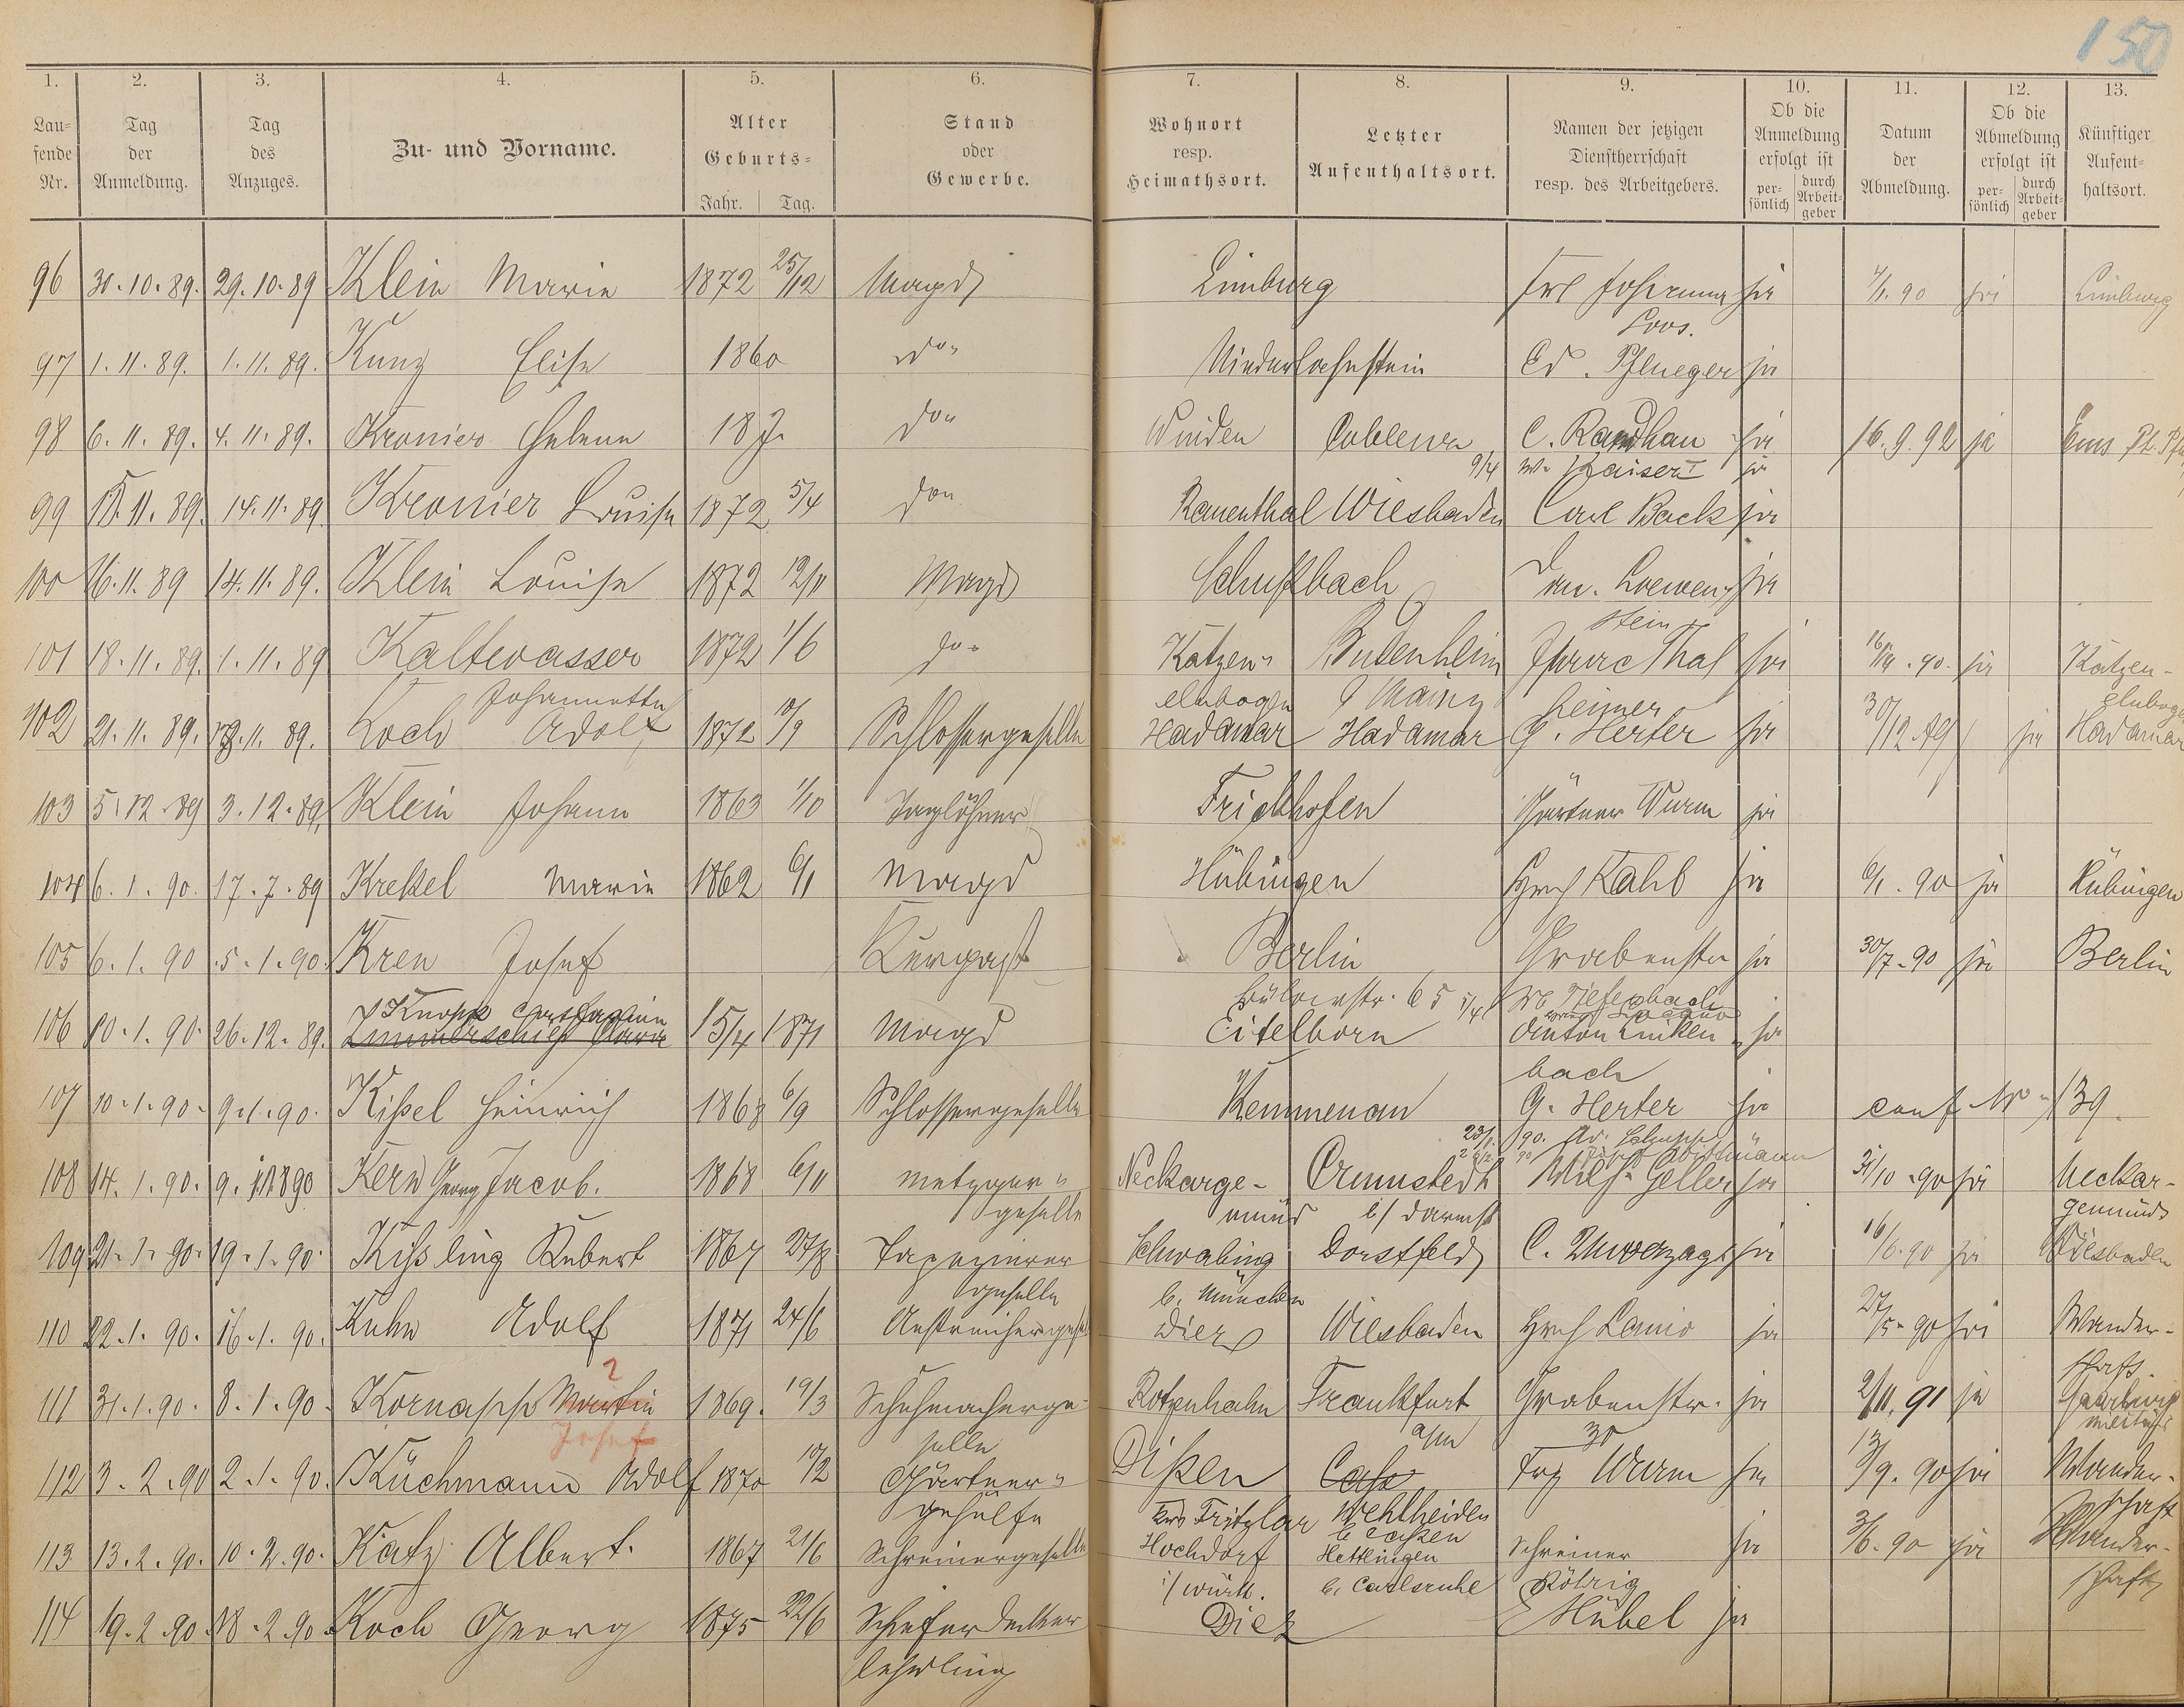 150
1. 2. 3. 4. 5. 6. 7. 8. 9. 10. 11. 12. 13.
Laufende Nr. Tag der Anmeldung. Tag des Anzuges. Zu- und Vorname. Alter Geburts- Jahr. Tag. Stand oder Gewerbe. Wohnort resp. Heimathsort. Letzter Aufenthaltsort. Namen der jetzigen Dienstherrschaft resp. des Arbeitgebers. Ob die Anmeldung erfolgt ist persönlich durch Arbeitgeber Datum der Abmeldung. Ob die Abmeldung erfolgt ist persönlich durch Arbeitgeber Künftiger Aufenthaltsort.
96 30.10.89. 29.10.89 Klein Marie 1872 25/12 Magd Limburg Frl Johanna Loos. ja 7/1.90 ja Limburg
97 1.11.89. 1.11.89. Kunz Elise 1860 do Niederlahnstein Ed. Pflueger ja
98 6.11.89. 4.11.89. Kronier Helene 187. do Winden Coblenz C. Randhan ja 16.9.92 ja Ems
9/4 W. Kaiser I ja
99 18.11.89. 14.11.89 Kronier Louise 1872 5/4 do Ramenthal Wiesbaden Carl Back ja
100 16.11.89 14.11.89. Klein Louise 1872 12/11 Magd Schußbach Loewenstein ja
101 18.11.89. 1.11.89 Kaltwasser Johannette 1872 1/6 do Katzenelnbogen Budenheim Mainz Isaac Thalheimer ja 16/4.90. ja Katzenelnbogen
102 21.11.89. 19.11.89. Koch Adolf 1872 10/9 Schlossergeselle Hadamar Hadamar G. Herter ja 30/12.89 ja Hadamar
103 5.12.89 3.12.89. Klein Johann 1863 1/10 Taglöhner Frickhofen Gärtner Wurm ja
104 6.1.90. 17.7.89 Krekel Marie 1862 6/1 Magd Hübingen Hrch Kalb ja 6/1.90 ja Hübingen
105 6.1.90 5.1.90. Kren Josef Kurgast Berlin Grabenstr ja 30/7.90 ja Berlin
Bülowstr. 65
106 10.1.90. 26.12.89. Knopp 15/4 1871 Magd Eitelborn Anton Linkenbach ja
107 10.1.90. 9.1.90. Kißel Heinrich 1868 6/9 Schlossergeselle Kemmenau G. Herter ja conf. No 139.
108 14.1.90. 9.1.1890 Kern Georg Jacob. 1868 6/11 Metzgergeselle Neckargemünd b/ Darmst Wilh. Heller ja 31/10.90 ja Neckargemünd
109 21.1.90. 19.1.90. Kissling Robert 1867 27/8 Tapeziergeselle Schwabing b. München Dorstfeld C. Unverzagt ja 16/6.90 ja Wiesbaden
110 22.1.90. 16.1.90. Kuhn Adolf 1871 24/6 Anstreichergesel Diez Wiesbaden Hrch Lanio ja 27/5.90 ja Wanderschaft.
111 31.1.90. 8.1.90 Kornapp Martin ? Josef 1869. 19/3 Schuhmachergeselle Rotzenhahn Frankfurt a/M Grabenstr. 30 ja 2/11.91 ja Saarburg Militär
112 3.2.90 2.1.90. Küchmann Adolf 1870 10/2 Gärtnergehülfe Dißen Krs Fritzlar Wehlheiden b Caßen Wurm ja 13/9.90 ja Wanderschaft
113 13.2.90. 10.2.90. Katz Albert. 1867 21/6 Schreinergeselle Hochdorf i/ Württ. Hettlingen b. Carlsruhe Schreiner Röhrig ja 3/6.90 ja Wanderschaft
114 19.2.90. 18.2.90. Koch Georg 1875 22/6 Schieferdecker lehrling Diez Hübel ja